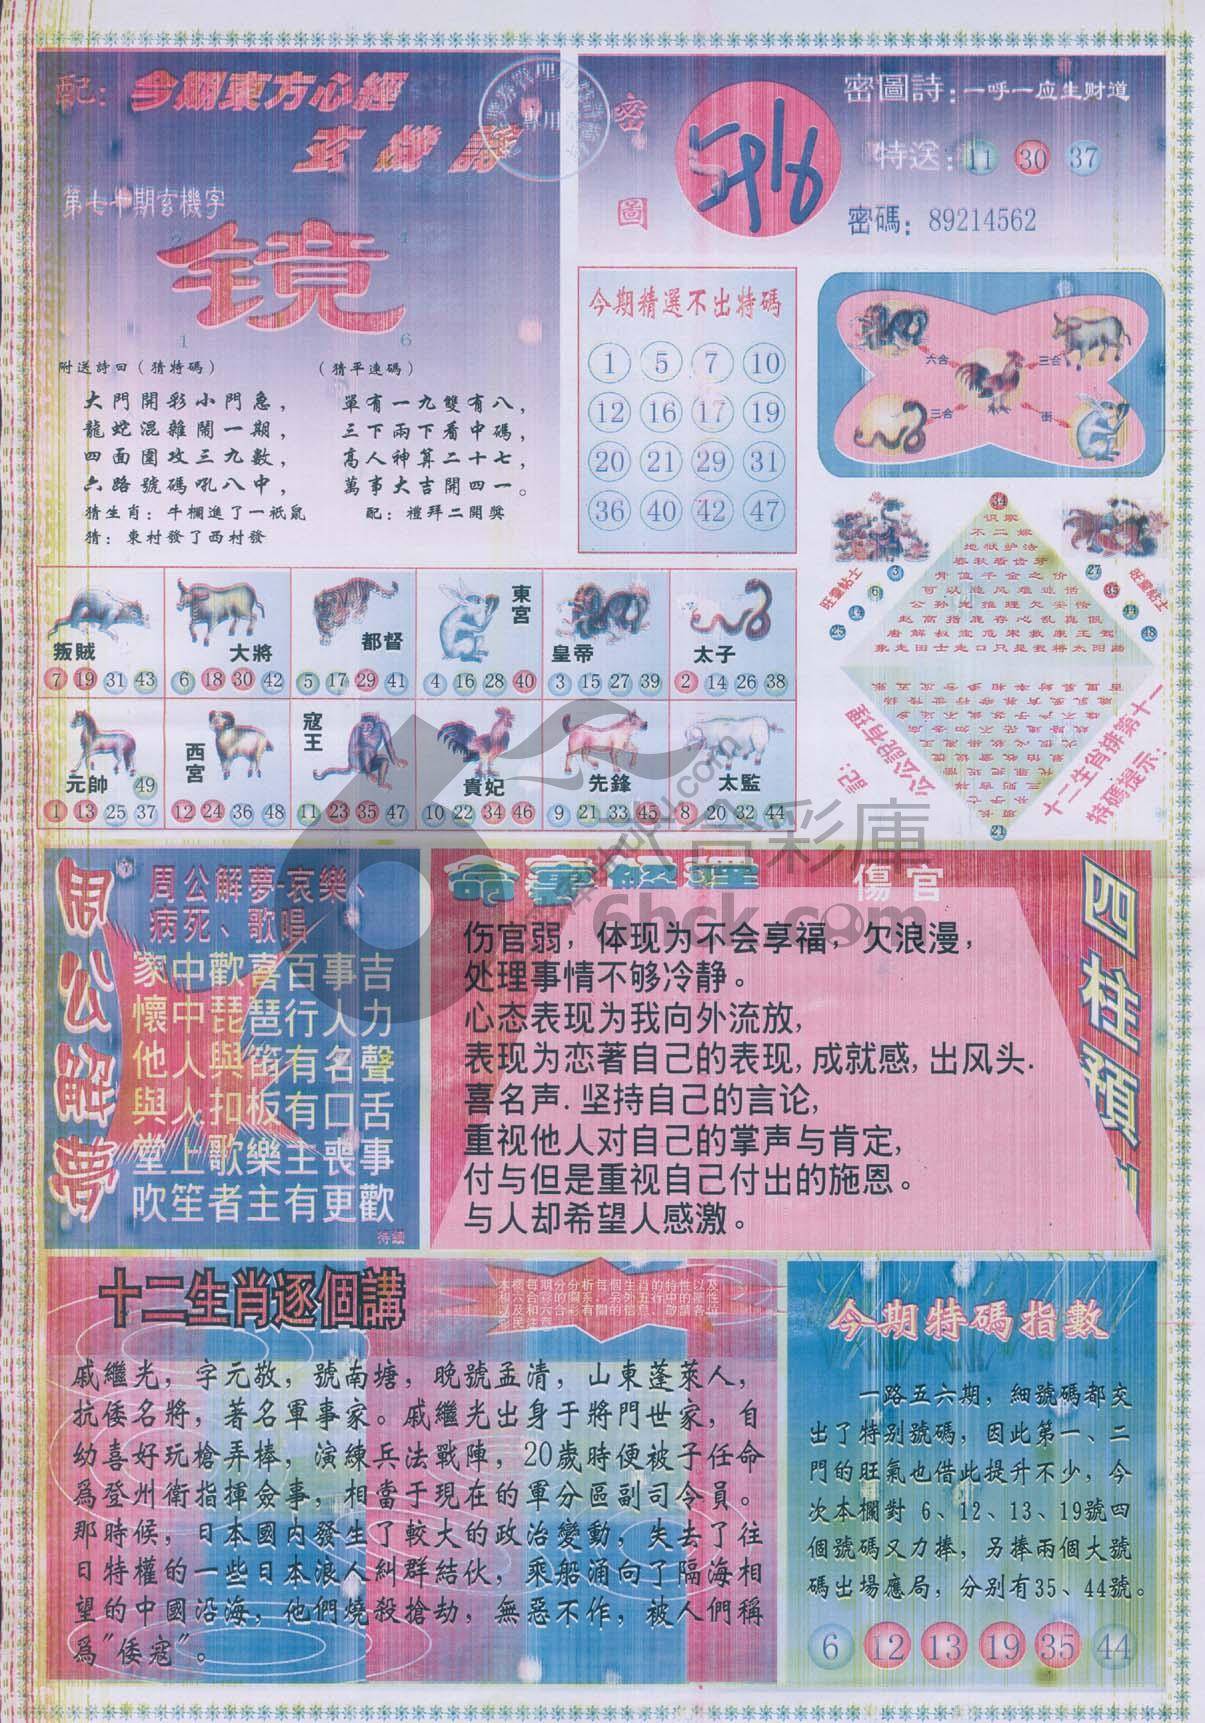 配：今期東方心經
玄機
第七十期玄機字
2 4
镜
1 6
附送詩曰（猜特碼）
大門開彩小門急，
龍蛇混雜鬧一期，
四面圍攻三九數，
六路號碼吼八中，
猜生肖：牛欄進了一祇鼠
猜：東村發了西村發
（猜平連碼）
單有一九雙有八，
三下兩下看中碼，
高人神算二十七，
萬事大吉開四一。
配：禮拜二開獎
密圖
密圖詩：一呼一应生财道
特送：11 30 37
密碼：89214562
今期精選不出特碼
1 5 7 10
12 16 17 19
20 21 29 31
36 40 42 47
六合 三合
三合 衝
34
识歌
不二嫁
地狱护法
春秋看齿牙
骨值千金之价
可以追风难追悟
公孙光推理欠安情
赵高指鹿存心乱真假
唐解叔宝危宋救康王驾
象走田士走口只是我将太阳晒
旺臺帖士
3
6
14
25
旺臺帖士
27
35
44
48
記：公公說有理
十二生肖排第十一
特碼提示：
21
叛賊
7 19 31 43
大將
6 18 30 42
都督
5 17 29 41
東宮
4 16 28 40
皇帝
3 15 27 39
太子
2 14 26 38
元帥 49
1 13 25 37
西宮
12 24 36 48
寇王
11 23 35 47
貴妃
10 22 34 46
先鋒
9 21 33 45
太監
8 20 32 44
六合彩庫
6hck.com
周公解夢
周公解夢-哀樂、
病死、歌唱
家中歡喜百事吉
懷中琵琶行人力
他人與笛有名聲
與人扣板有口舌
堂上歌樂主喪事
吹笙者主有更歡
待續
命裏解運 傷官
四柱預
伤官弱，体现为不会享福，欠浪漫，
处理事情不够冷静。
心态表现为我向外流放，
表现为恋著自己的表现，成就感，出风头.
喜名声.坚持自己的言论，
重视他人对自己的掌声与肯定，
付与但是重视自己付出的施恩。
与人却希望人感激。
十二生肖逐個講
本欄每期分分析每個生肖的特性以及
和六合彩的關系，另外五行中的屬性
以及和六合彩有關的信息，敬請各位
彩民注意
戚繼光，字元敬，號南塘，晚號孟清，山東蓬萊人，
抗倭名將，著名軍事家。戚繼光出身于將門世家，自
幼喜好玩槍弄棒，演練兵法戰陣，20歲時便被子任命
爲登州衛指揮僉事，相當于現在的軍分區副司令員。
那時候，日本國內發生了較大的政治變動，失去了往
日特權的一些日本浪人糾群結伙，乘船涌向了隔海相
望的中國沿海，他們燒殺搶劫，無惡不作，被人們稱
爲"倭寇"。
今期特碼指數
一路五六期，細號碼都交
出了特別號碼，因此第一、二
門的旺氣也借此提升不少，今
次本欄對 6、12、13、19號四
個號碼又力捧，另捧兩個大號
碼出場應局，分別有35、44號。
6 12 13 19 35 44